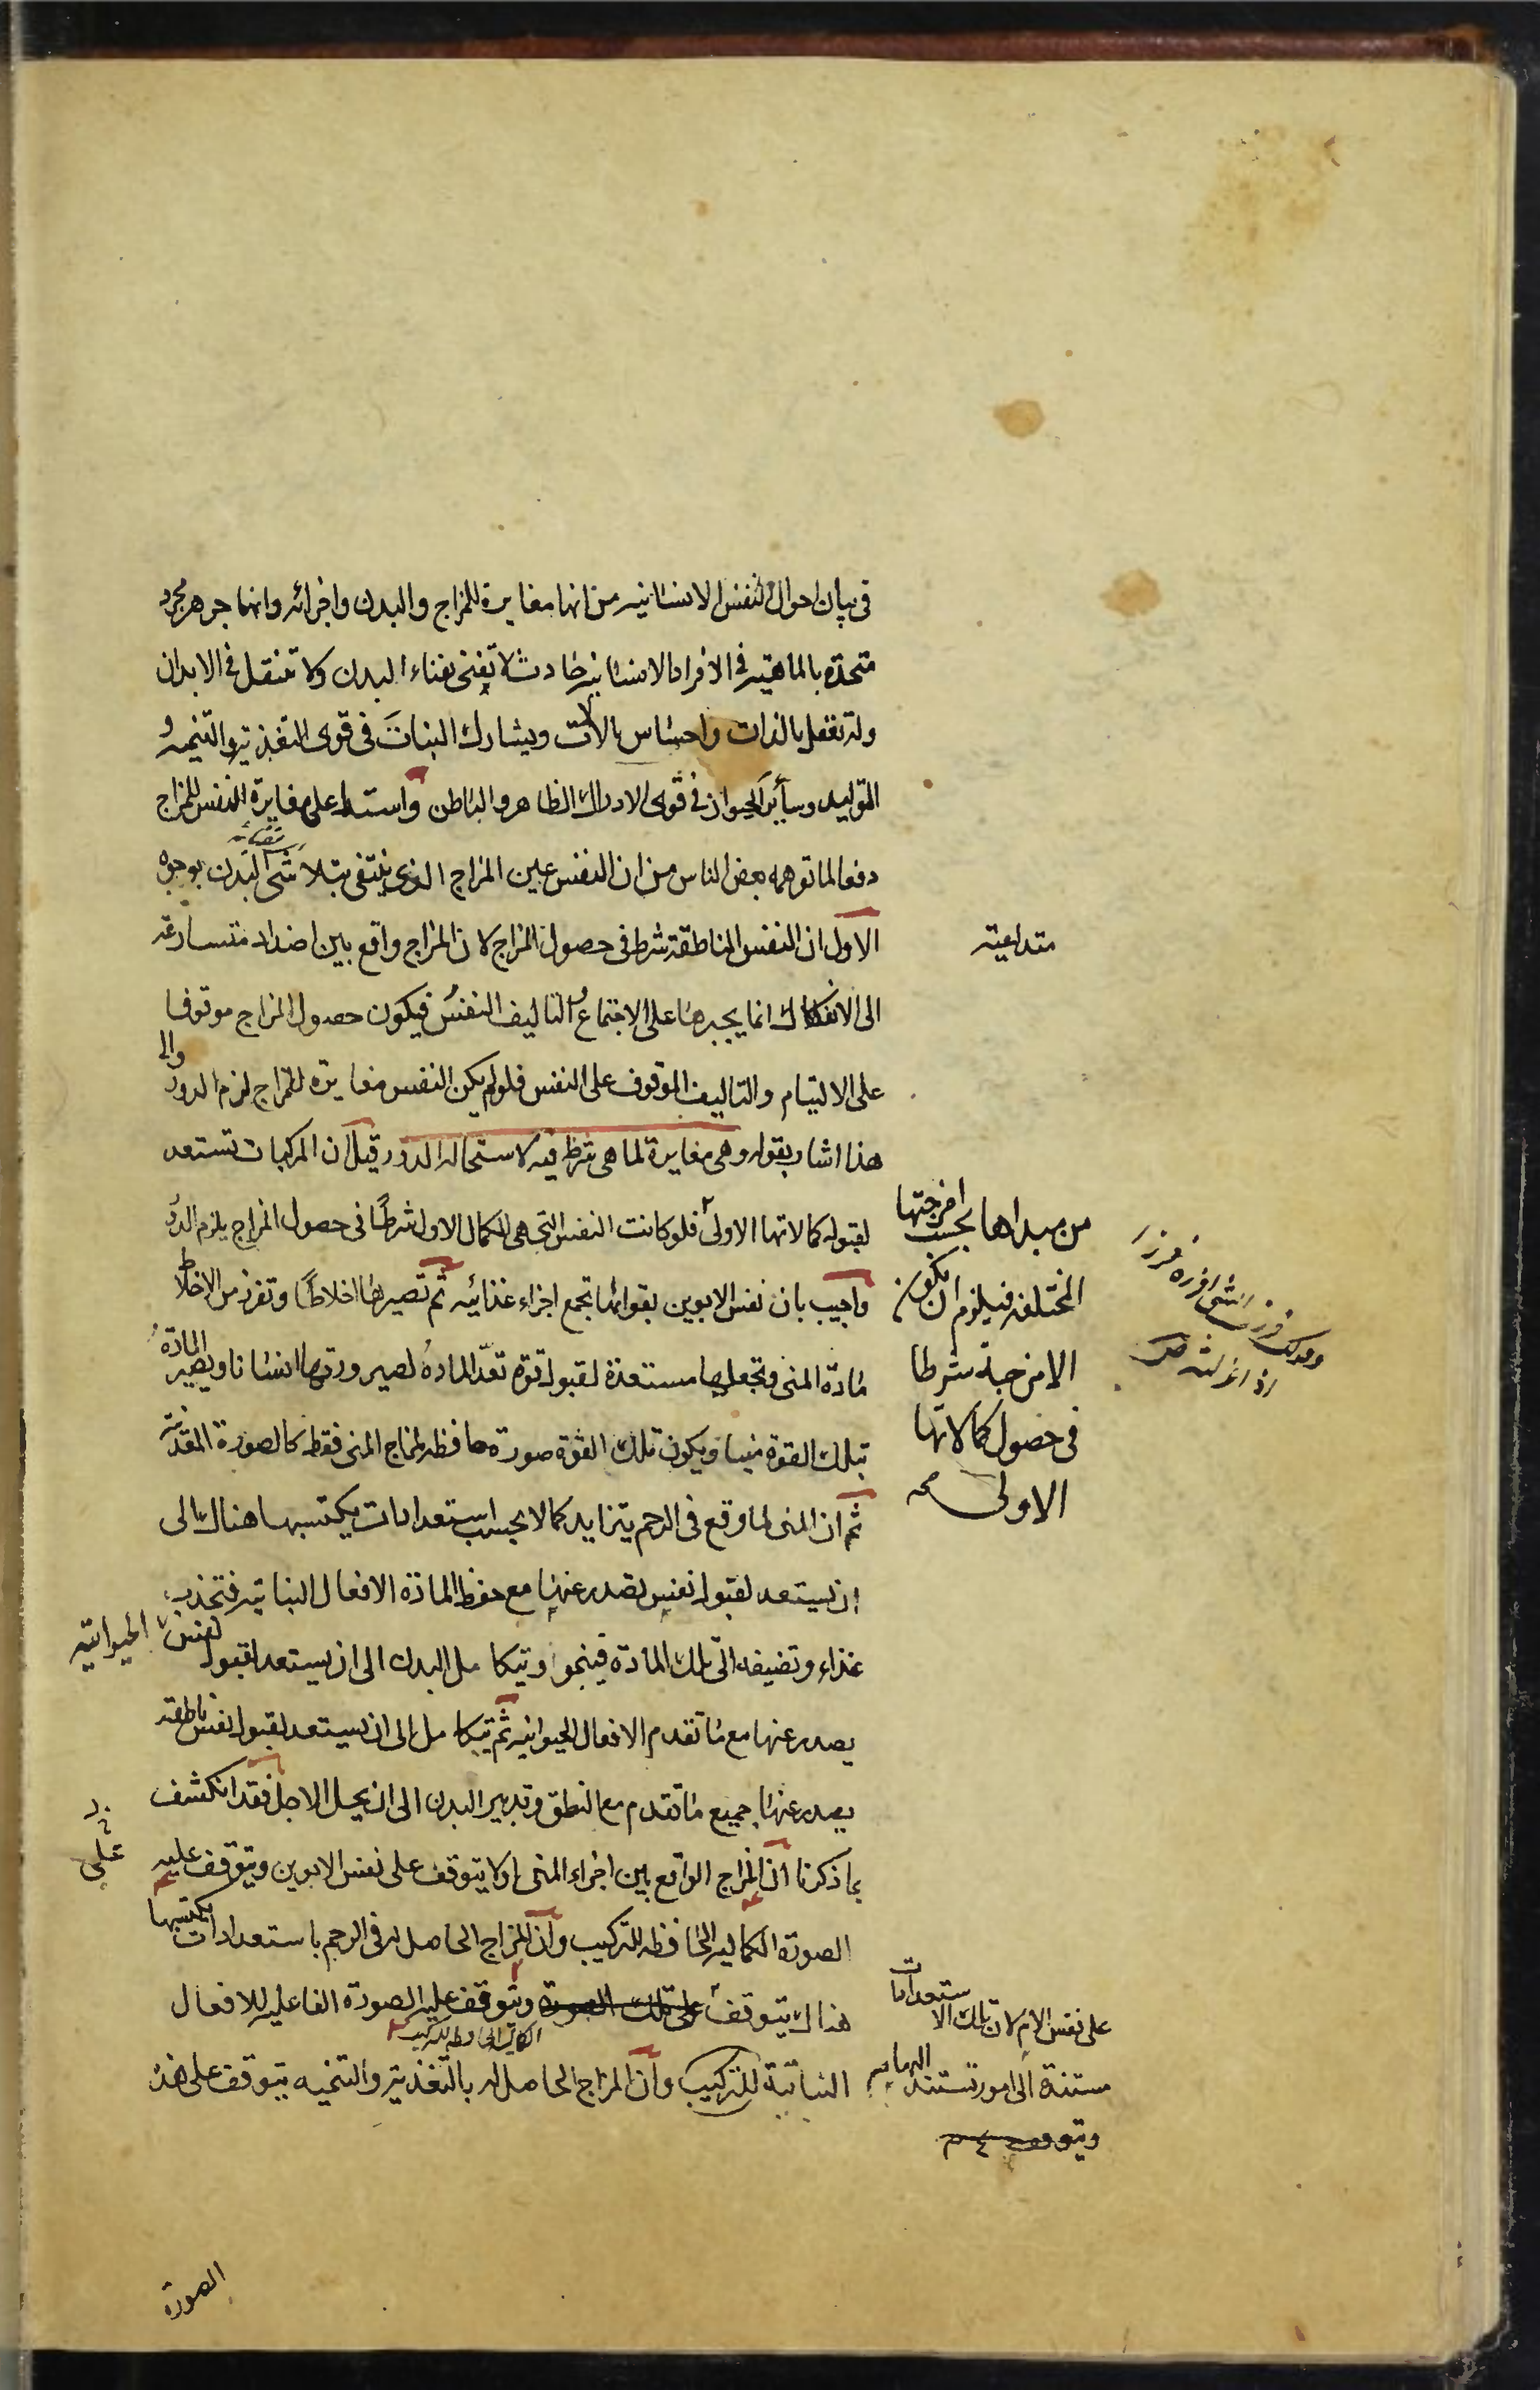 فى بيان احوال النفس الانسانيه من انها مغايرة للمزاج والبدن واجزائه وانها جوهر مجرد
متحدة بالماهية فى الافراد الانسانية حادثة لا تفنى بفناء البدن ولا تنتقل فى الابدان
وله تعقل بالذات واحساس بالالات ويشارك النبات فى قوى التغذية والتنميه و
التوليد وسائر الحيوان فى قوى الادراك الظاهر والباطن واستدل على مغايرة النفس للمزاج
دفعا لما توهمه بعض الناس من ان النفس عين المزاج الذى ينتفى بتلاشى البدن بوجوه
الاول ان النفس الناطقة شرط فى حصول المزاج لان المزاج واقع بين اضداد متسارعة
متداعية
الى الانفكاك انما يجبرها على الاجتماع و التاليف النفس فيكون حصول المزاج موقوفا
على الالتيام والتاليف الموقوف على النفس فلو لم يكن النفس مغايرة للمزاج لزم الدور والى
هذا اشار بقوله وهى مغايرة لما هى شرط فيه لاستحالة الدور قيل ان المركبات تستعد
لقبول كمالاتها الاولى فلو كانت النفس التى هى الكمال الاول شرطًا فى حصول المزاج يلزم الدور
من مبداها بحسب امزجتها
المختلفه فيلزم ان يكون
الامزجة شرطا
فى حصول كمالاتها
الاولى صح
واجيب بان نفس الابوين بقواهما تجمع اجزاء غذائيه ثم تصيرها اخلاطًا وتفرز من الاخلاط
مادة المنى وتجعلها مستعدة لقبول قوة تعدّ المادة لصيرورتها انسانا ويصير المادة
بتلك القوة منيا ويكون تلك القوة صورة حافظه لمزاج المنى فقط كالصورة المعدنية
ثم ان المنى لما وقع فى الرحم يتزايد كمالا بحسب استعدادات يكتسبها هناك الى
ان يستعد لقبول نفس يصدر عنها مع حفظ المادة الافعال النباتيه فتجذب
غذاء وتضيفه الى تلك المادة فينمو ويتكامل البدن الى ان يستعد لقبول لنفس الحيوانية
يصدر عنها مع ما تقدم الافعال الحيوانيه ثم يتكامل الى ان يستعد لقبول نفس ناطقه
يصدر عنها جميع ما تقدم مع النطق وتدبير البدن الى ان يحل الاجل فقد انكشف
بما ذكرنا ان المزاج الواقع بين اجزاء المنى اولا يتوقف على نفس الابوين ويتوقف عليه
الصورة الكماليه الحافظه للتركيب وان المزاج الحاصل له فى الرحم باستعدادات يكتسبها
هناك يتوقف على تلك الصورة ويتوقف عليه الصورة الفاعليه للافعال
على نفس الام لان تلك الاستعدادات
مستندة الى امور تستند اليها
النباتية للتركيب وان المزاج الحاصل له بالتغذية والتنميه يتوقف على هذه
الصورة